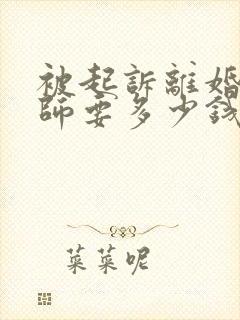 被起訴離婚
師要多少錢
菜菜呢